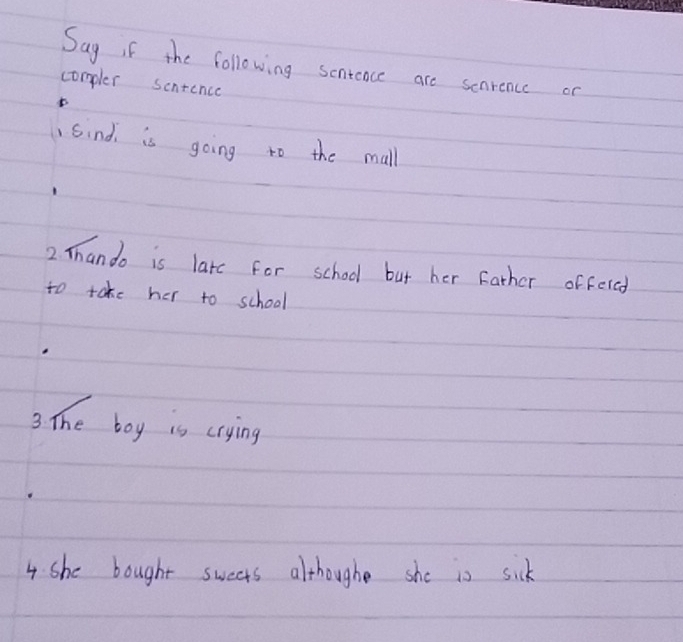 Say if the following sentence are sentence or
compler sentence
1. Sindi is going to the mall
2. Thando is late for school but her father offered
to take her to school
3. The boy is crying
4. She bought sweets althoughe she is sick